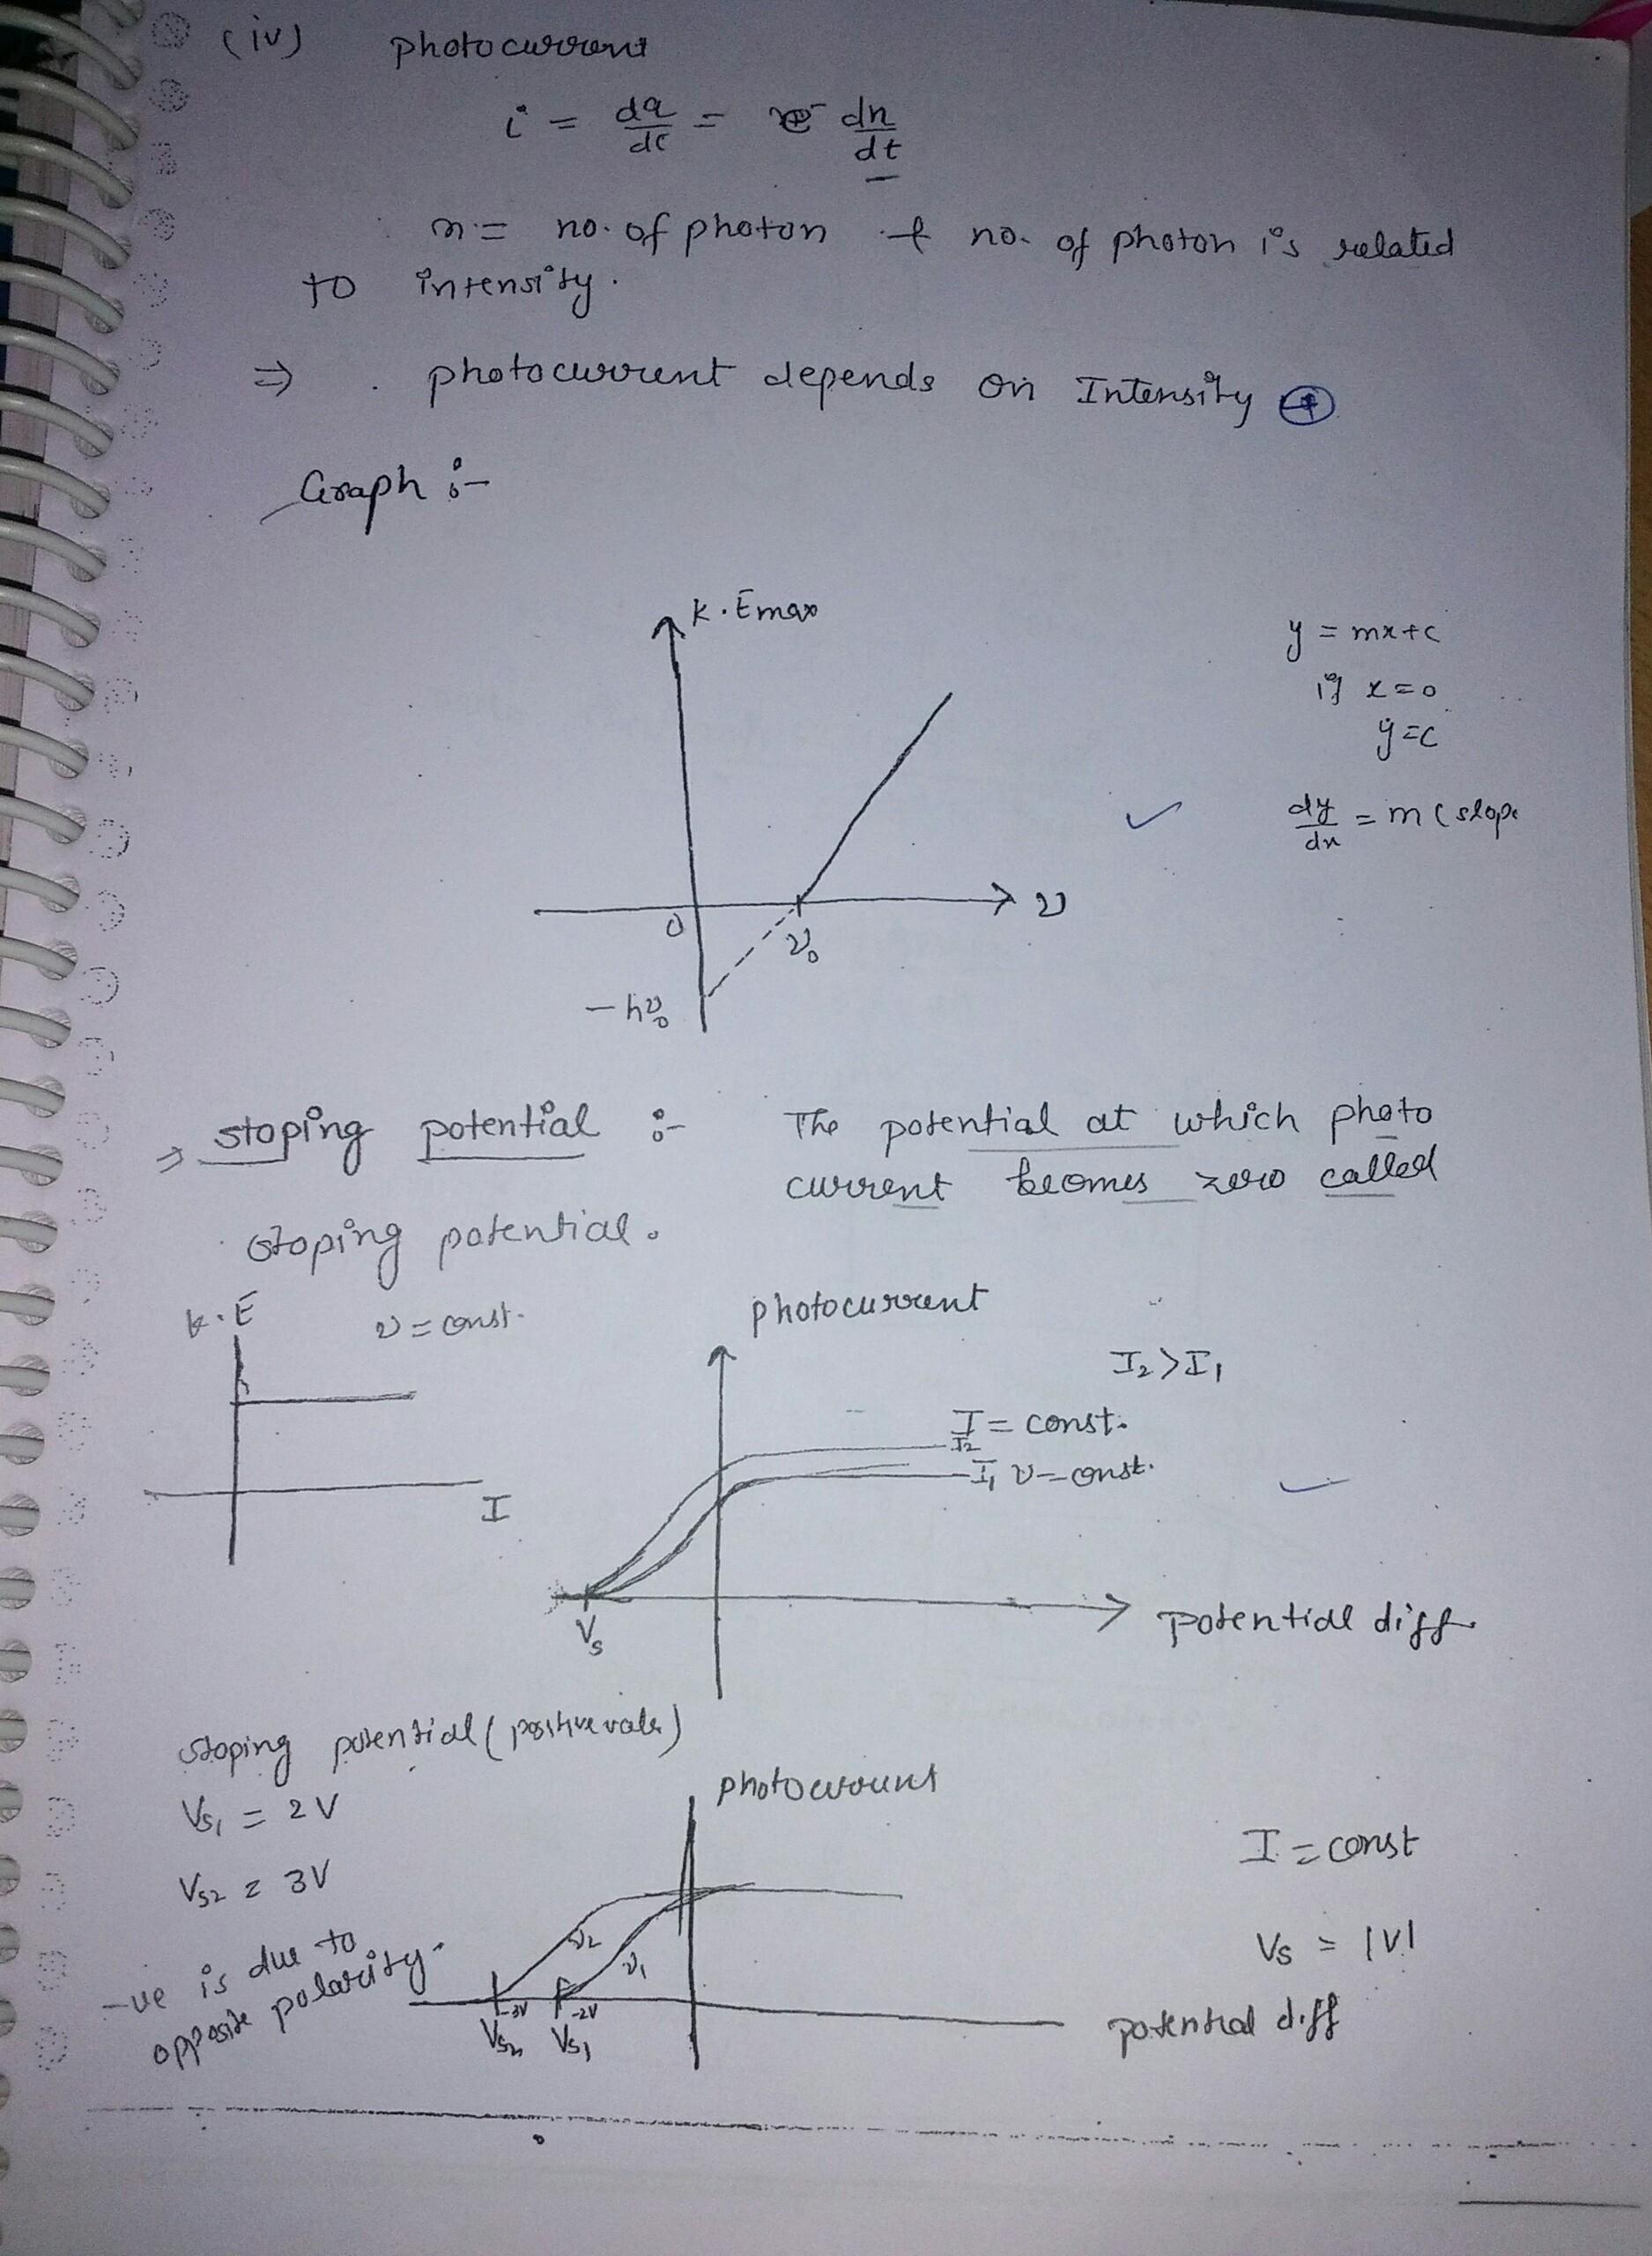 (iv) photocurrent
i = dq/dt = e⁻ dn/dt
n = no. of photon & no. of photon is related
to intensity.
⇒ photocurrent depends on Intensity
Graph :-
K.Emax
y = mx+c
if x=0
y=c
dy/dx = m (slope
0
ν₀
ν
-hν₀
⇒ stoping potential :- The potential at which photo
current becomes zero called
stoping potential.
k.E
ν = const.
I
photocurrent
I₂ > I₁
I = const.
I₂
I₁ ν = const.
Vs
potential diff.
stoping potential (positive value)
Vs₁ = 2V
Vs₂ = 3V
-ve is due to
opposite polarity.
photocurrent
I = const
Vs = |V|
ν₂
ν₁
-3V
-2V
Vs₂
Vs₁
potential diff